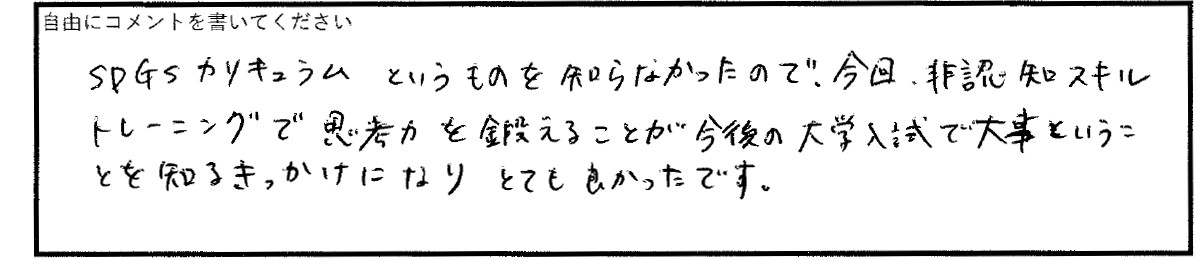 自由にコメントを書いてください
SDGSカリキュラム というものを知らなかったので、今回、非認知スキル
トレーニングで思考力を鍛えることが今後の大学入試で大事というこ
とを知るきっかけになり とても良かったです。